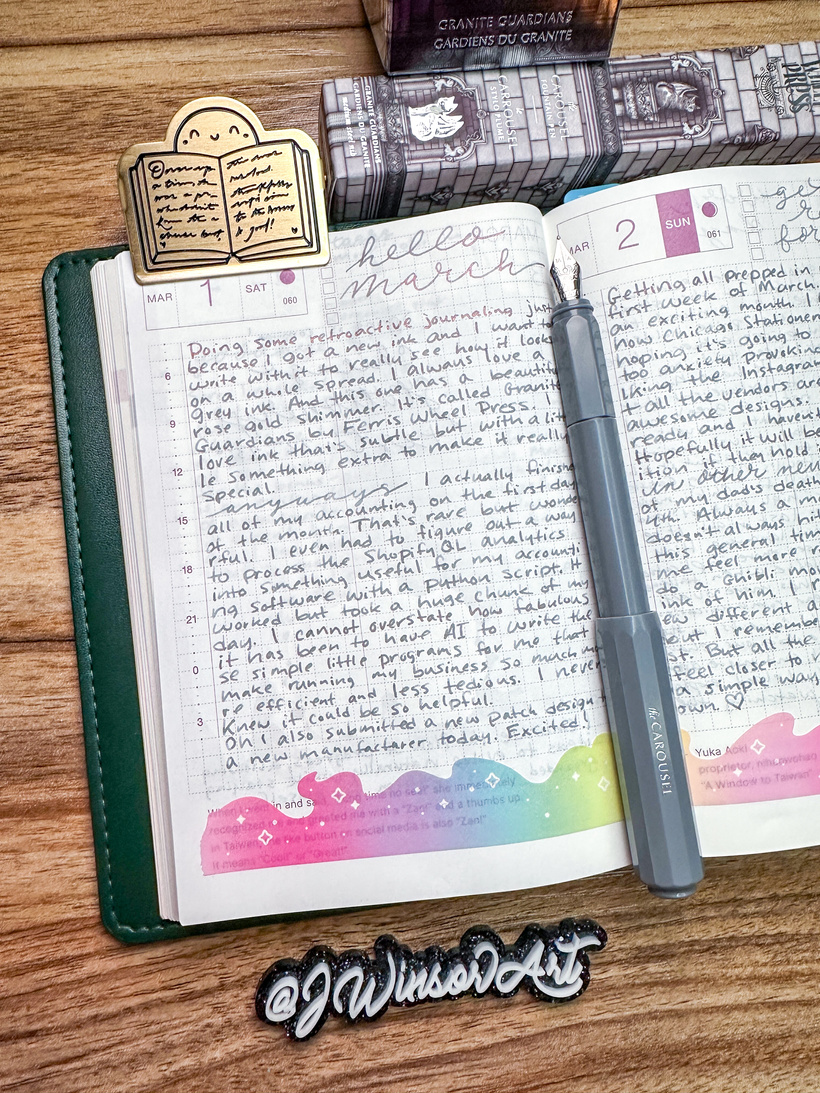 GRANITE GUARDIANS
GARDIENS DU GRANITE
GRANITE GUARDIANS
GARDIENS DU GRANITE
the CAROUSEL
STYLO PLUME
the CAROUSEL
FOUNTAIN PEN
PRESS
MAR 1 SAT
060
hello
march
Doing some retroactive journaling
because I got a new ink and I want to
write with it to really see how it looks
on a whole spread. I always love a
grey ink. And this one has a beautiful
rose gold shimmer. It's called Granite
Guardians by Ferris Wheel Press.
love ink that's subtle but with a lit
le something extra to make it really
special.
anyways I actually finished
all of my accounting on the first day
of the month. That's rare but wonde
rful. I even had to figure out a way
to process the ShopifyQL analytics
into something useful for my accounti
ng software with a Python script. It
worked but took a huge chunk of my
day. I cannot overstate how fabulous
it has been to have AI to write the
se simple little programs for me that
make running my business so much mo
re efficient and less tedious. I never
knew it could be so helpful.
Oh I also submitted a new patch design
a new manufacturer today. Excited!
6
9
12
15
18
21
0
3
in and
me with a "Zan!" and a thumbs up.
in Taiwan, the like button on social media is also "Zan!"
It means "Cool!" or "Great!"
MAR 2 SUN
061
for
Getting all prepped in
first week of March
an exciting month. I
how Chicago Stationer
hoping it's going to
too anxiety provoking
liking the Instagram
t all the vendors are
awesome designs.
ready and I haven't
Hopefully it will be
ition if they hold i
in other new
of my dad's death
4th. Always a m
doesn't always hit
this general tim
me feel more r
do a Ghibli mo
ink of him. I
ew different a
but I remembe
ot. But all the
feel closer to
a simple way
own. ♡
Yuka Aoki
proprietor, nihaowohao
"A Window to Taiwan"
the CAROUSEL
@JWinsorArt